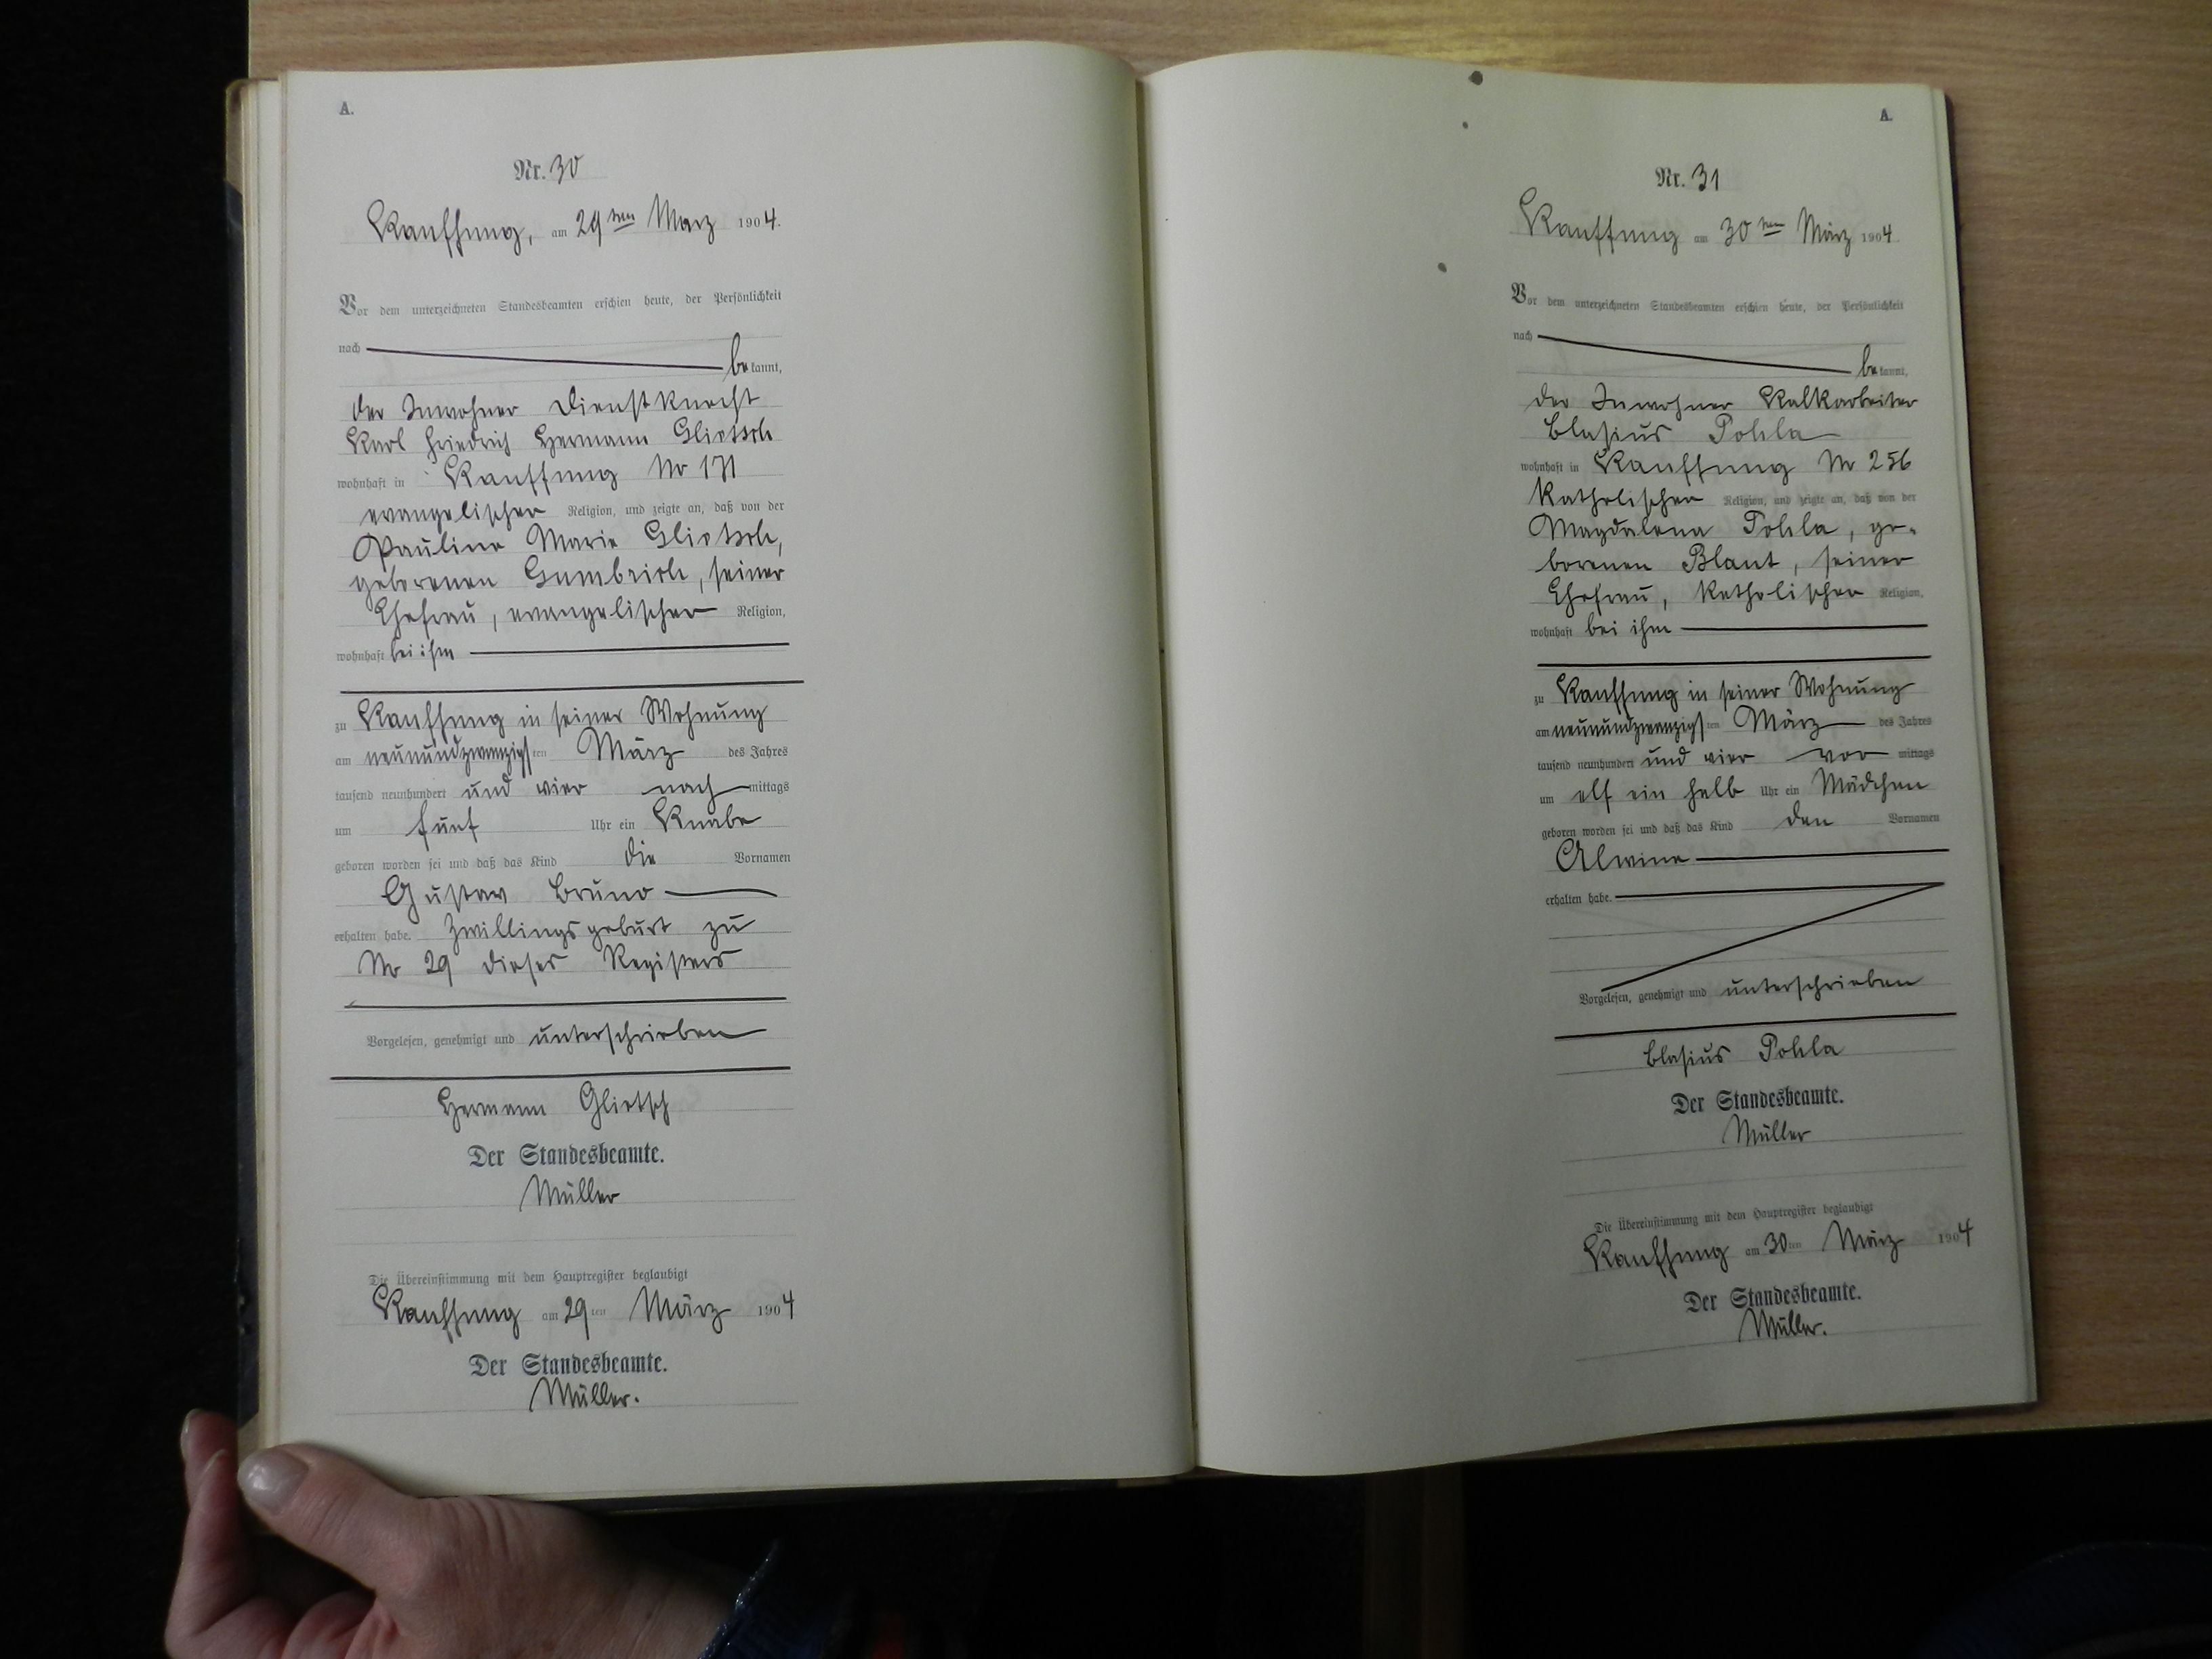 A.
Nr. 30
Kauffung, am 29ten März 1904.
Vor dem unterzeichneten Standesbeamten erschien heute, der Persönlichkeit
nach
bekannt,
der Inwohner Dienstknecht
Karl Friedrich Hermann Glietsch
wohnhaft in Kauffung No 171
evangelischer Religion, und zeigte an, daß von der
Pauline Marie Glietsch,
geborenen Gumbrich, seiner
Ehefrau, evangelischer Religion,
wohnhaft bei ihm
zu Kauffung in seiner Wohnung
am neunundzwanzigsten März des Jahres
tausend neunhundert und vier nachmittags
um fünf Uhr ein Knabe
geboren worden sei und daß das Kind die Vornamen
Gustav Bruno
erhalten habe. Zwillingsgeburt zu
No 29 dieses Registers
Vorgelesen, genehmigt und unterschrieben
Hermann Glietsch
Der Standesbeamte.
Müller
Die Übereinstimmung mit dem Hauptregister beglaubigt
Kauffung am 29ten März 1904
Der Standesbeamte.
Müller.
A.
Nr. 31
Kauffung am 30ten März 1904.
Vor dem unterzeichneten Standesbeamten erschien heute, der Persönlichkeit
nach
bekannt,
der Inwohner Kalkarbeiter
Blasius Pohla
wohnhaft in Kauffung No 256
katholischer Religion, und zeigte an, daß von der
Magdalena Pohla, ge-
borenen Blaut, seiner
Ehefrau, katholischer Religion,
wohnhaft bei ihm
zu Kauffung in seiner Wohnung
am neunundzwanzigsten März des Jahres
tausend neunhundert und vier vormittags
um elf ein halb Uhr ein Mädchen
geboren worden sei und daß das Kind den Vornamen
Alwine
erhalten habe.
Vorgelesen, genehmigt und unterschrieben
Blasius Pohla
Der Standesbeamte.
Müller
Die Übereinstimmung mit dem Hauptregister beglaubigt
Kauffung am 30ten März 1904
Der Standesbeamte.
Müller.